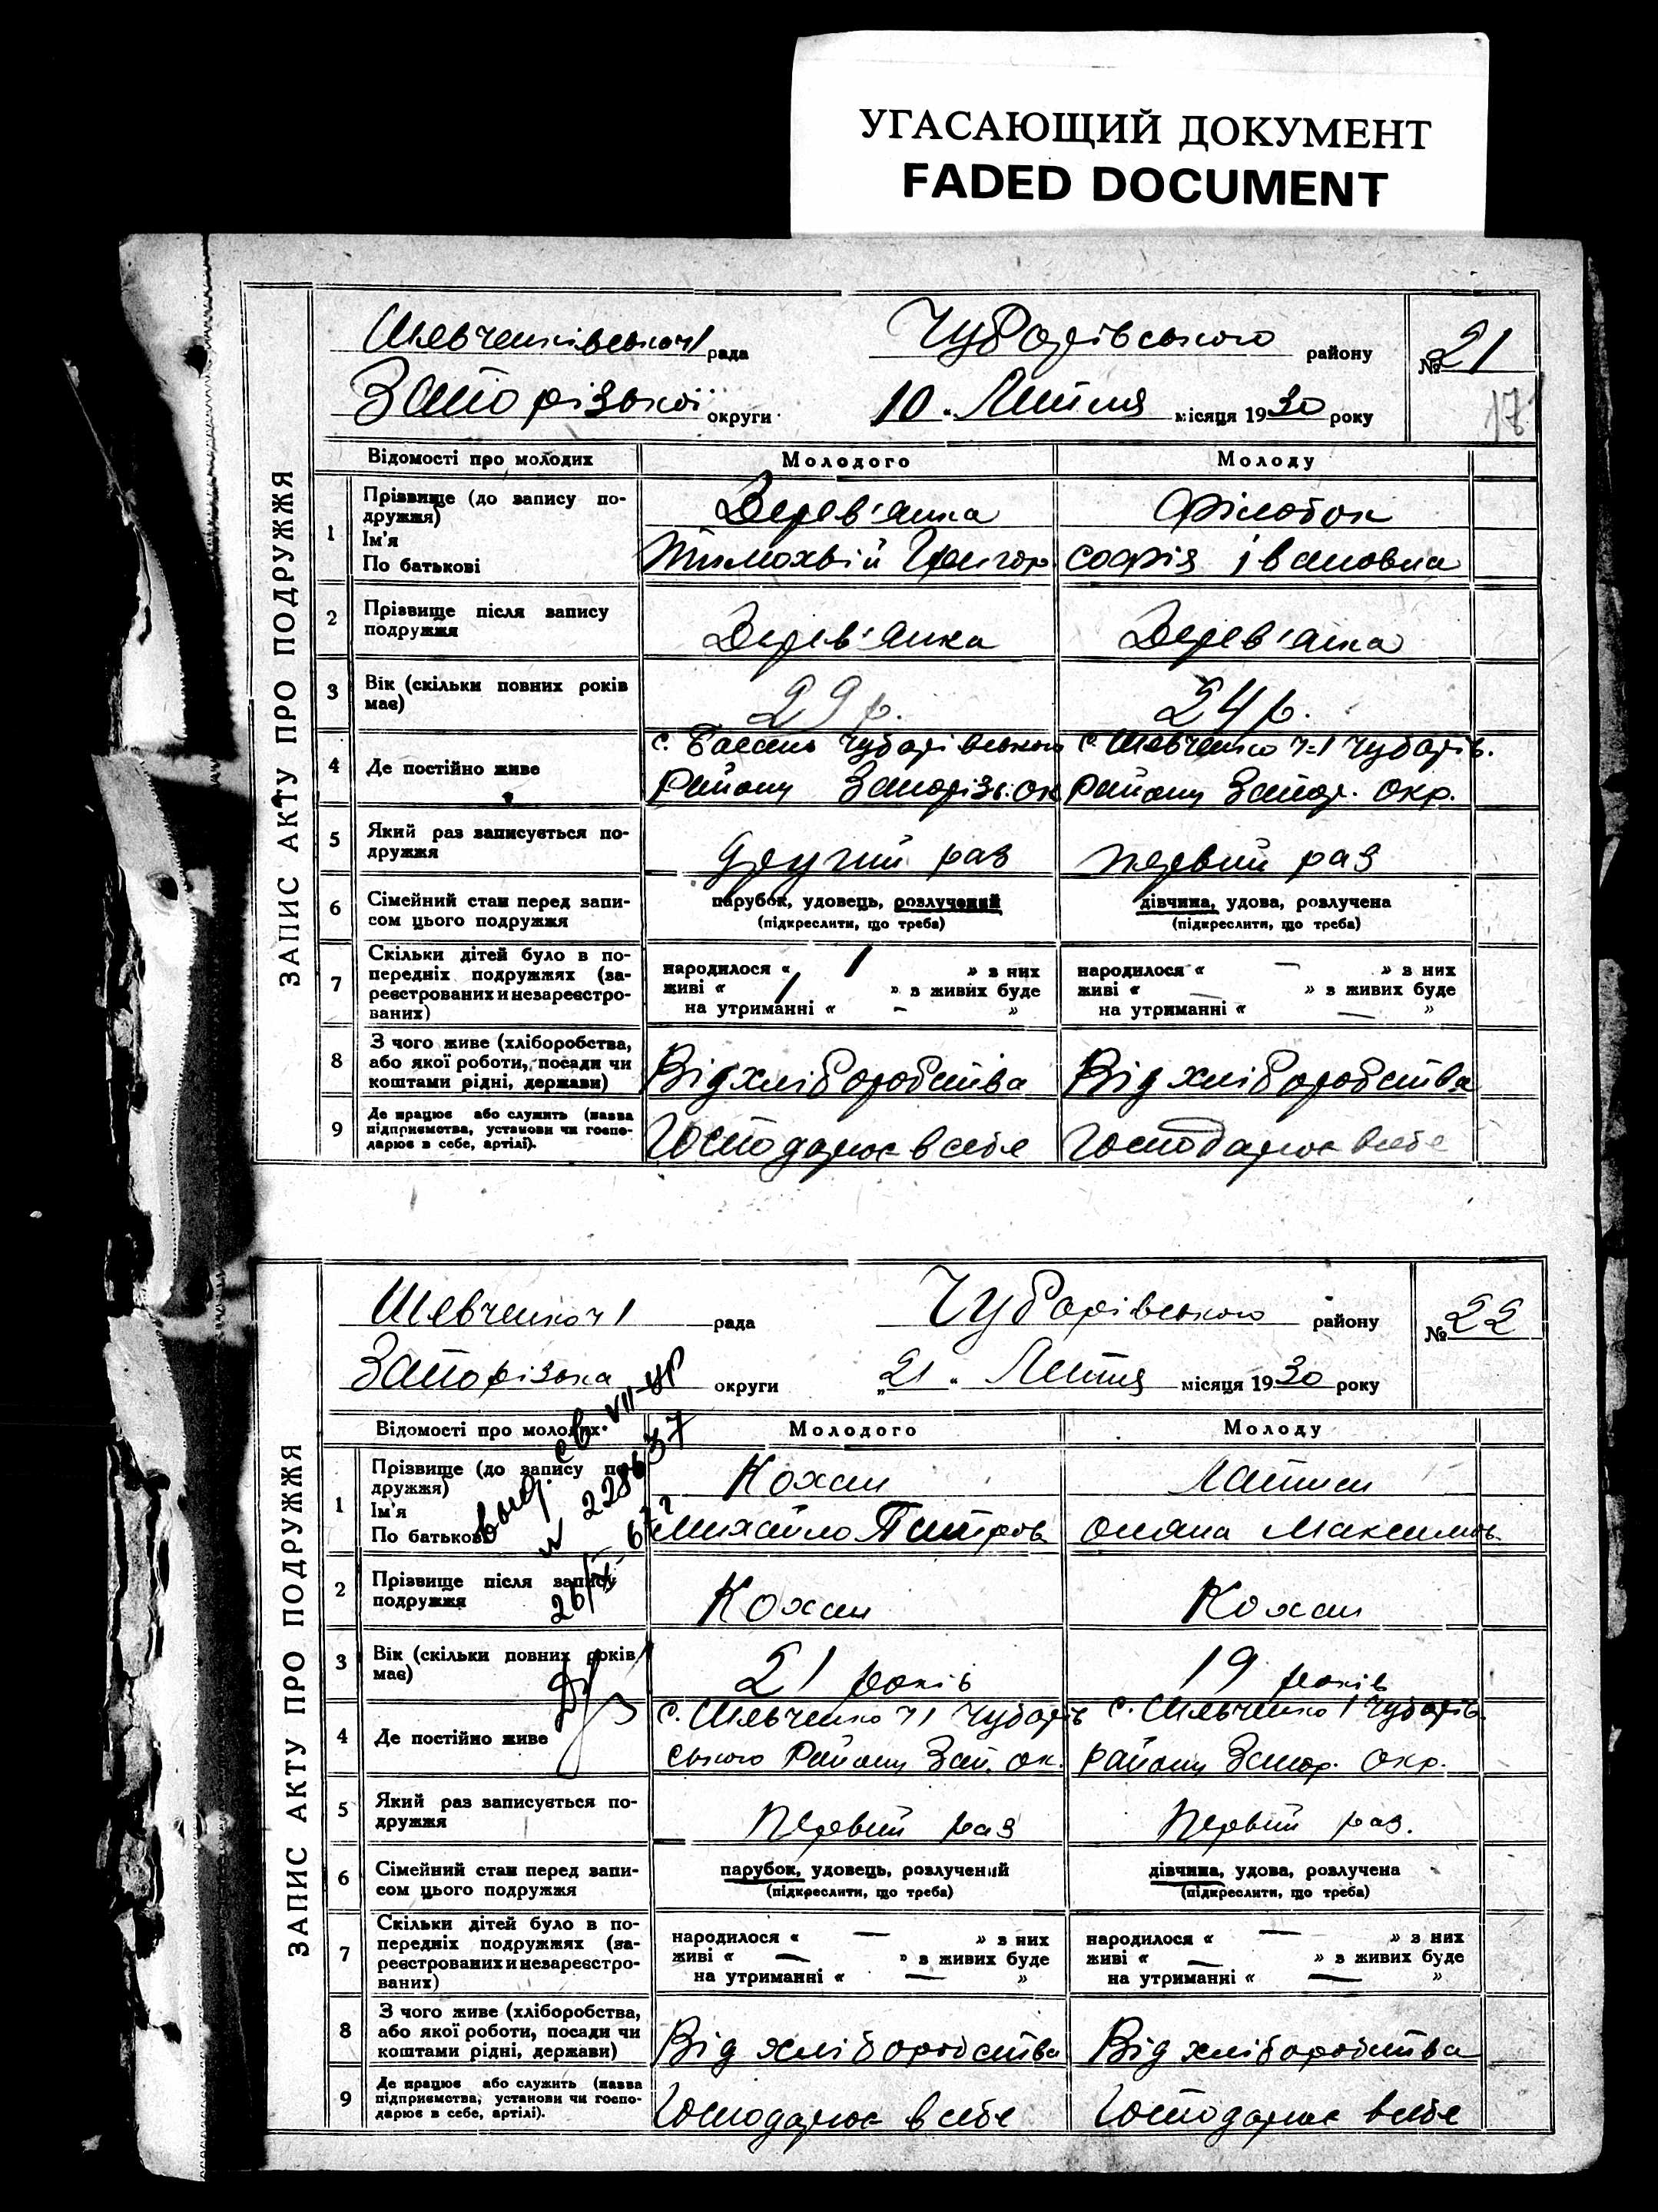 УГАСАЮЩИЙ ДОКУМЕНТ
FADED DOCUMENT
ЗАПИС АКТУ ПРО ПОДРУЖЖЯ
Шевченківської рада Чубарівського району № 21
17
Запорізької округи „10“ Липня місяця 1930 року
Відомості про молодих Молодого Молоду
1 Прізвище (до запису подружжя) Дерев'янка Філобок
Ім'я
По батькові Тимохвій Григор. Софія Івановна
2 Прізвище після запису подружжя Дерев'янка Дерев'янка
3 Вік (скільки повних років має) 29 р. 24 р.
4 Де постійно живе с. Басань Чубарівського с. Шевченко ч-1 Чубарів.
Району Запорізь. Ок Району Запор. Окр.
5 Який раз записується подружжя Другий раз первий раз
6 Сімейний стан перед записом цього подружжя парубок, удовець, розлучений дівчина, удова, розлучена
(підкреслити, що треба) (підкреслити, що треба)
7 Скільки дітей було в попередніх подружжях (зареєстрованих и незареєстрованих) народилося « 1 » з них народилося « — » з них
живі « 1 » з живих буде живі « — » з живих буде
на утриманні « — » на утриманні « — »
8 З чого живе (хліборобства, або якої роботи, посади чи коштами рідні, держави) Від хліборобства Від хліборобства
9 Де працює або служить (назва підприємства, установи чи господарює в себе, артілі). Господарює в себе Господарює в себе
ЗАПИС АКТУ ПРО ПОДРУЖЖЯ
Шевченко ч 1 рада Чубарівського району № 22
Запорізька округи „21“ Липня місяця 1930 року
Відомості про молодих Молодого Молоду
1 Прізвище (до запису подружжя) Кохан Латиш
Ім'я
По батькові Михайло Питров. Оляна Максимов.
2 Прізвище після запису подружжя Кохан Кохан
3 Вік (скільки повних років має) 21 років 19 років
4 Де постійно живе с. Шевченко ч 1 Чубарів с. Шевченко 1 Чубарів.
ського Району Зап. ок. Району Запор. Окр.
5 Який раз записується подружжя Первий раз Первий раз.
6 Сімейний стан перед записом цього подружжя парубок, удовець, розлучений дівчина, удова, розлучена
(підкреслити, що треба) (підкреслити, що треба)
7 Скільки дітей було в попередніх подружжях (зареєстрованих и незареєстрованих) народилося « — » з них народилося « — » з них
живі « — » з живих буде живі « — » з живих буде
на утриманні « — » на утриманні « — »
8 З чого живе (хліборобства, або якої роботи, посади чи коштами рідні, держави) Від хліборобства Від хліборобства
9 Де працює або служить (назва підприємства, установи чи господарює в себе, артілі). Господарює в себе Господарює в себе
выд. св. VII-УР